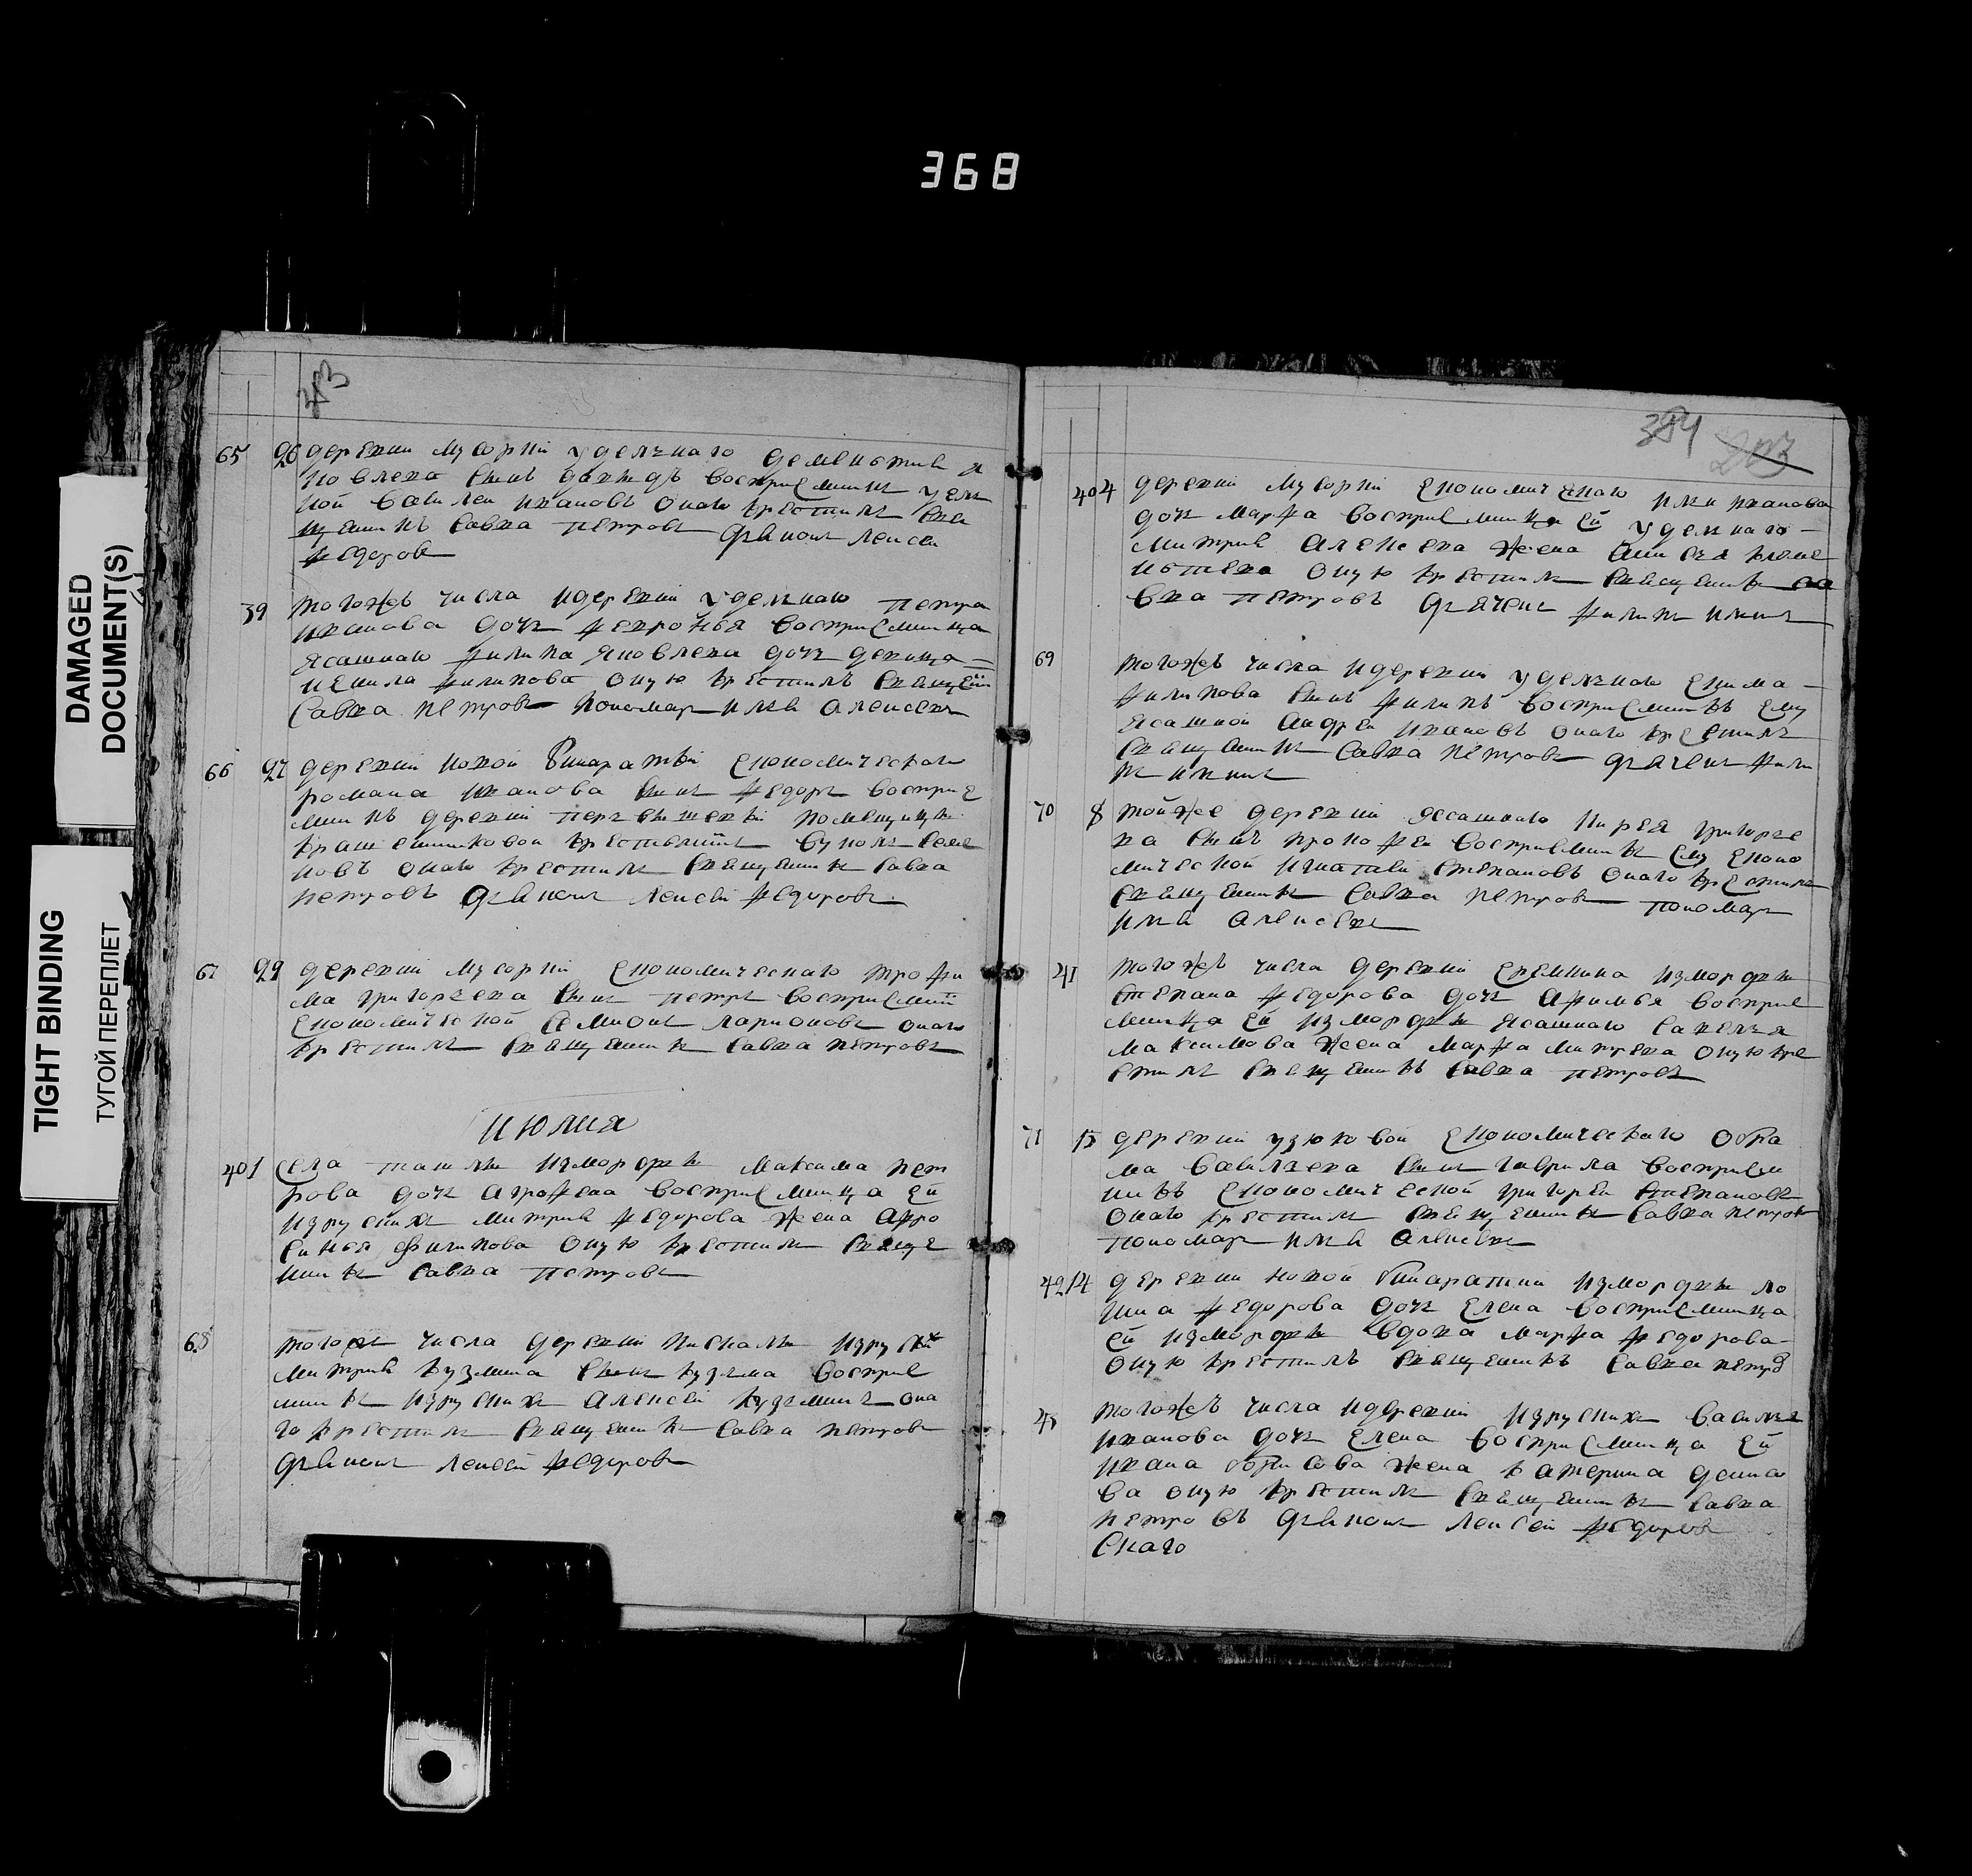 368
DAMAGED
DOCUMENT(S)
TIGHT BINDING
ТУГОЙ ПЕРЕПЛЕТ
383
65 26 деревни Мусорки удельнаго Дементия Я
ковлева сынъ Давидъ восприемникъ удель
ной Василеи Ивановъ онаго крестилъ свя
щенникъ Савва Петровъ дьяконъ Лексеи
Федоровъ
39 тогожъ числа идеревни удельнаго Петра
Иванова дочь Февронья восприемница
ясашнаго Филипа Яковлева дочь девица
Филипова оную крестилъ священ
Савва Петровъ пономарь Илья Алексеевъ
66 27 деревни Новой Бинаратки економическаго
Романа Иванова сынъ Федоръ восприе
мникъ деревни помещицы
крестьянинъ
новъ онаго крестилъ священникъ Савва
Петровъ дьяконъ Лексеи Федоровъ
67 29 деревни Мусорки економическаго Трофи
ма Григорьева сынъ Петръ восприемник
економической Семионъ Ларионовъ онаго
крестилъ священникъ Савва Петровъ
июлия
40 1 села Ташлы измордвы Максима Пет
рова дочь Аграфена восприемница ей
изруских Митрия Федорова жена Афро
синья Филипова оную крестилъ священ
никъ Савва Петровъ
68 тогожъ числа деревни Пискалы изруских
Митрия Кузмина сынъ Кузьма восприе
мникъ изруских Алексеи Кузьминъ она
го крестилъ священникъ Савва Петровъ
дьяконъ Лексеи Федоровъ
384
40 4 деревни Мусорки економическаго Ильи Иванова
дочь Марфа восприемница ей удельнаго
Митрия Алексеева жена Анисья Клеме
нтьева оную крестилъ священникъ Са
вва Петровъ дьячекъ Филипъ
69 тогожъ числа идеревни удельнаго Екима
Филипова сынъ Филипъ восприемникъ ему
ясашной Андреи Ивановъ онаго крестилъ
священникъ Савва Петровъ дьячекъ Фили
пъ
70 8 тойже деревни ясашнаго Кирея Григорье
ва сынъ Прокофеи восприемникъ ему еконо
мической Игнатеи Степановъ онаго крестилъ
священникъ Савва Петровъ пономарь
Илья Алексеевъ
41 тогожъ числа деревни Еремкина измордвы
Степана Федорова дочь Афимья восприе
мница ей измордвы ясашнаго Савелья
Максимова жена Марфа Митрева оную кре
стилъ священникъ Савва Петровъ
71 13 деревни Узюковой економическаго Обра
ма Васильева сынъ Гаврила восприем
никъ економической Григореи Степановъ
онаго крестилъ священникъ Савва Петровъ
пономарь Илья Алексеевъ
42 14 деревни Новой Бинаратки измордвы Ло
гина Федорова дочь Елена восприемница
ей измордвы вдова Марфа Федорова
оную крестилъ священникъ Савва Петров
43 тогожъ числа идеревни изруских Василья
Иванова дочь Елена восприемница ей
Ивана Борисова жена Катерина Денисо
ва оную крестилъ священникъ Савва
Петровъ дьяконъ Лексеи Федоров